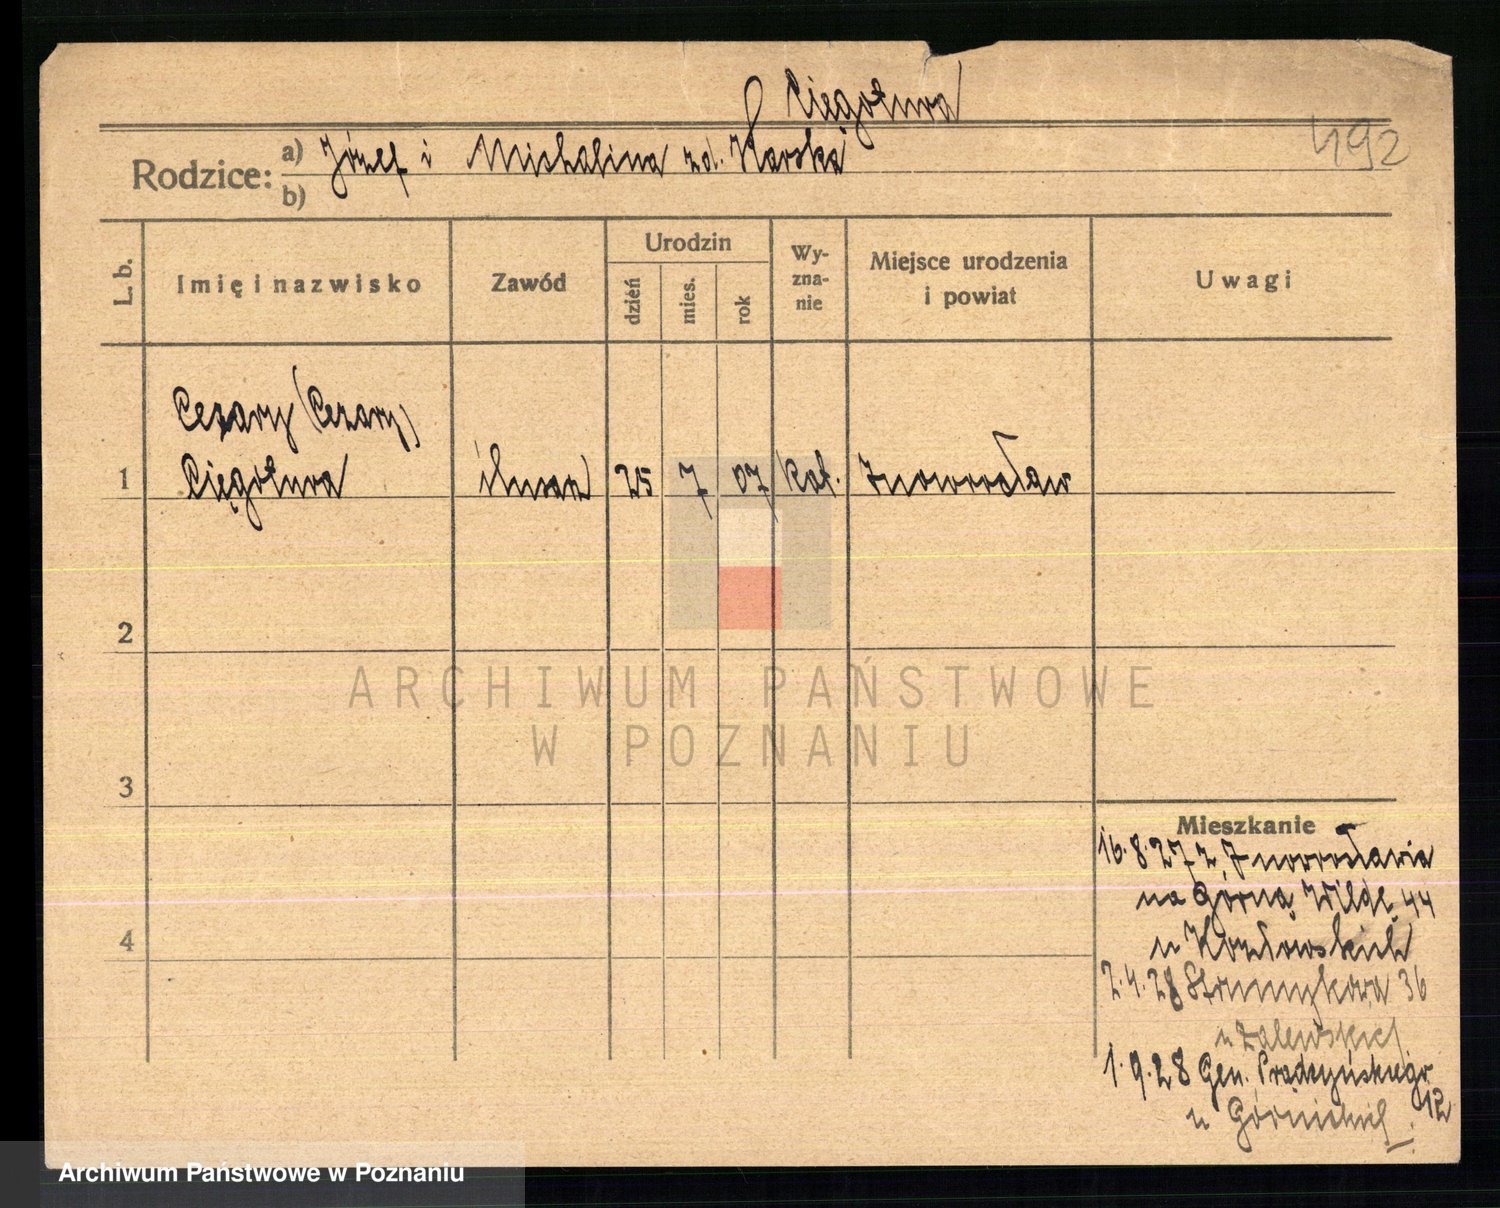 Cięgotura
492
Rodzice: a) Józef i Michalina zd. Karska
b)
L. b. Imię i nazwisko Zawód Urodzin dzień mies. rok Wyznanie Miejsce urodzenia i powiat Uwagi
Cezary (Cezary)
1 Cięgotura ślusarz 25 7 07 kat. Inowrocław
2
3
4
Mieszkanie
16.8.27 z Inowrocławia
na Górną Wildę 44
u Kozłowskich
2.4.28 Strumykowa 36
u Zalewskiej
1.9.28 Gen. Prądzyńskiego
12
u
ARCHIWUM PAŃSTWOWE
W POZNANIU
Archiwum Państwowe w Poznaniu